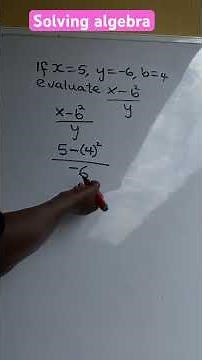 Solving algebra
If x=5, y=-6, b=4
evaluate x-b²/y
x-b²
y
5-(4)²
-6